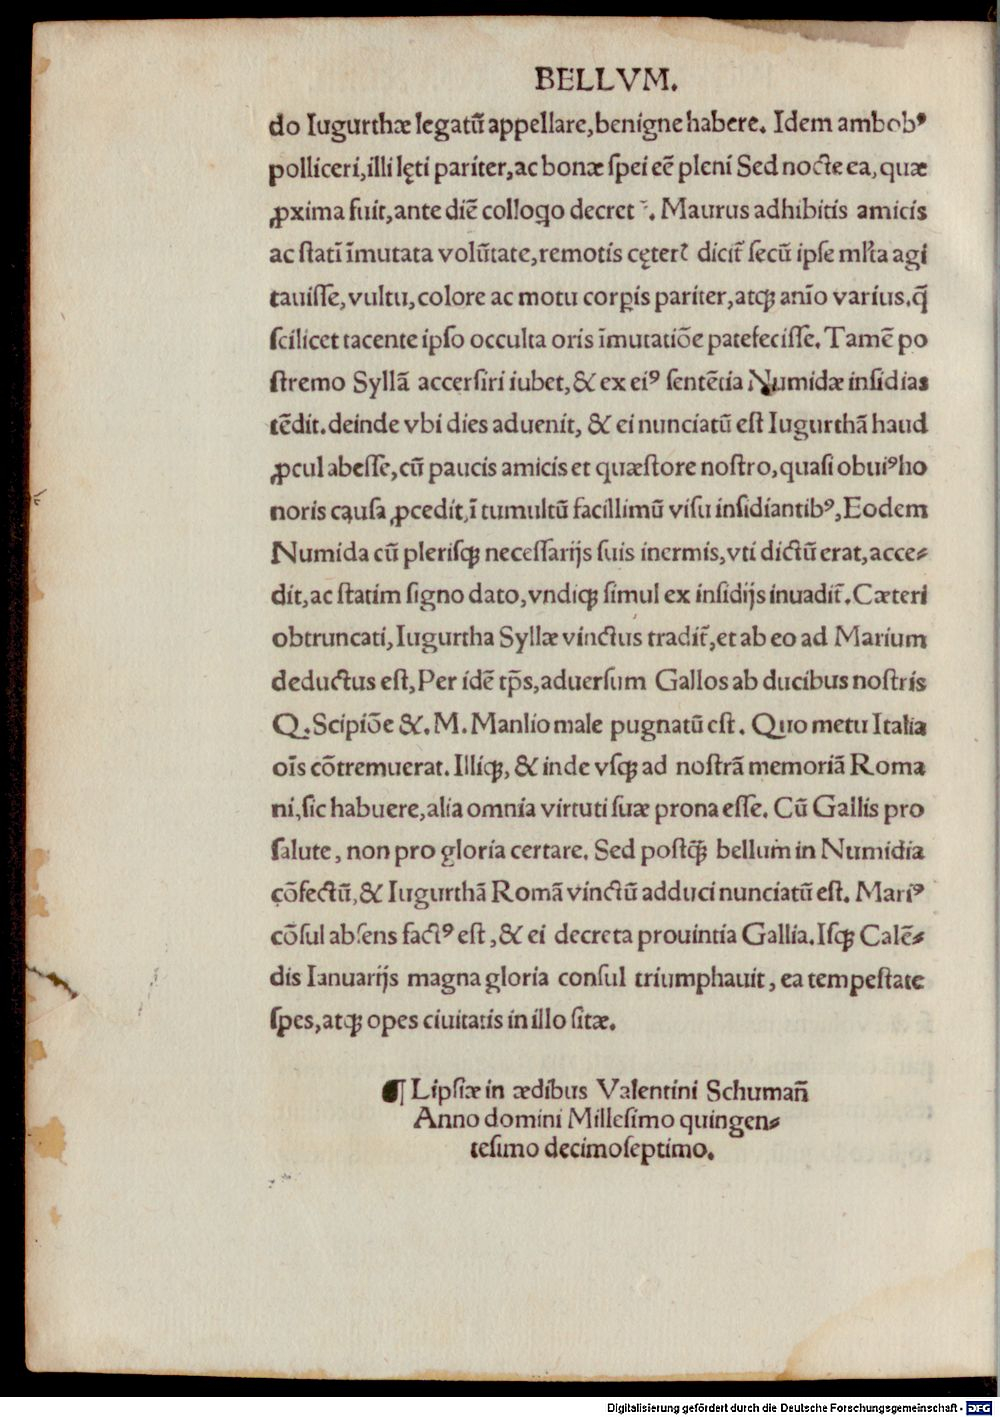 BELLVM.
do Iugurthæ legatū appellare, benigne habere. Idem ambobꝰ
polliceri, illi lęti pariter, ac bonæ ſpei eē pleni Sed nocte ea, quæ
ꝓxima fuit, ante diē colloq̄o decret ̄. Maurus adhibitis amicis
ac ſtatī īmutata volūtate, remotis cęterꝭ dicit̄ ſecū ipſe ml̄ta agi
tauiſſe, vultu, colore ac motu corꝑis pariter, atqꝫ anīo varius. q̄
ſcilicet tacente ipſo occulta oris īmutatiōe patefeciſſe. Tamē po
ſtremo Syllā accerſiri iubet, & ex eiꝰ ſentētia Numidæ inſidias
tēdit. deinde vbi dies aduenit, & ei nunciatū eſt Iugurthā haud
ꝓcul abeſſe, cū paucis amicis et quæſtore noſtro, quaſi obuiꝰ ho
noris cauſa ꝓcedit, ī tumultū facillimū viſu inſidiantibꝰ, Eodem
Numida cū pleriſqꝫ neceſſarijs ſuis inermis, vti dictū erat, acce⸗
dit, ac ſtatim ſigno dato, vndiqꝫ ſimul ex inſidijs inuadit̄. Cæteri
obtruncati, Iugurtha Syllæ vinctus tradit̄, et ab eo ad Marium
deductus eſt, Per idē tp̄s, aduerſum Gallos ab ducibus noſtris
Q. Scipiōe &. M. Manlio male pugnatū eſt. Quo metu Italia
oīs cōtremuerat. Illiqꝫ, & inde vſqꝫ ad noſtrā memoriā Roma
ni, ſic habuere, alia omnia virtuti ſuæ prona eſſe. Cū Gallis pro
ſalute, non pro gloria certare. Sed poſtqꝫ̄ bellum in Numidia
cōfectū, & Iugurthā Romā vinctū adduci nunciatū eſt. Mariꝰ
cōſul abſens factꝰ eſt, & ei decreta prouintia Gallia. Iſqꝫ Calē⸗
dis Ianuarijs magna gloria conſul triumphauit, ea tempeſtate
ſpes, atqꝫ opes ciuitatis in illo ſitæ.
¶ Lipſiæ in ædibus Valentini Schumañ
Anno domini Milleſimo quingen⸗
teſimo decimoſeptimo.
Digitalisierung gefördert durch die Deutsche Forschungsgemeinschaft - DFG